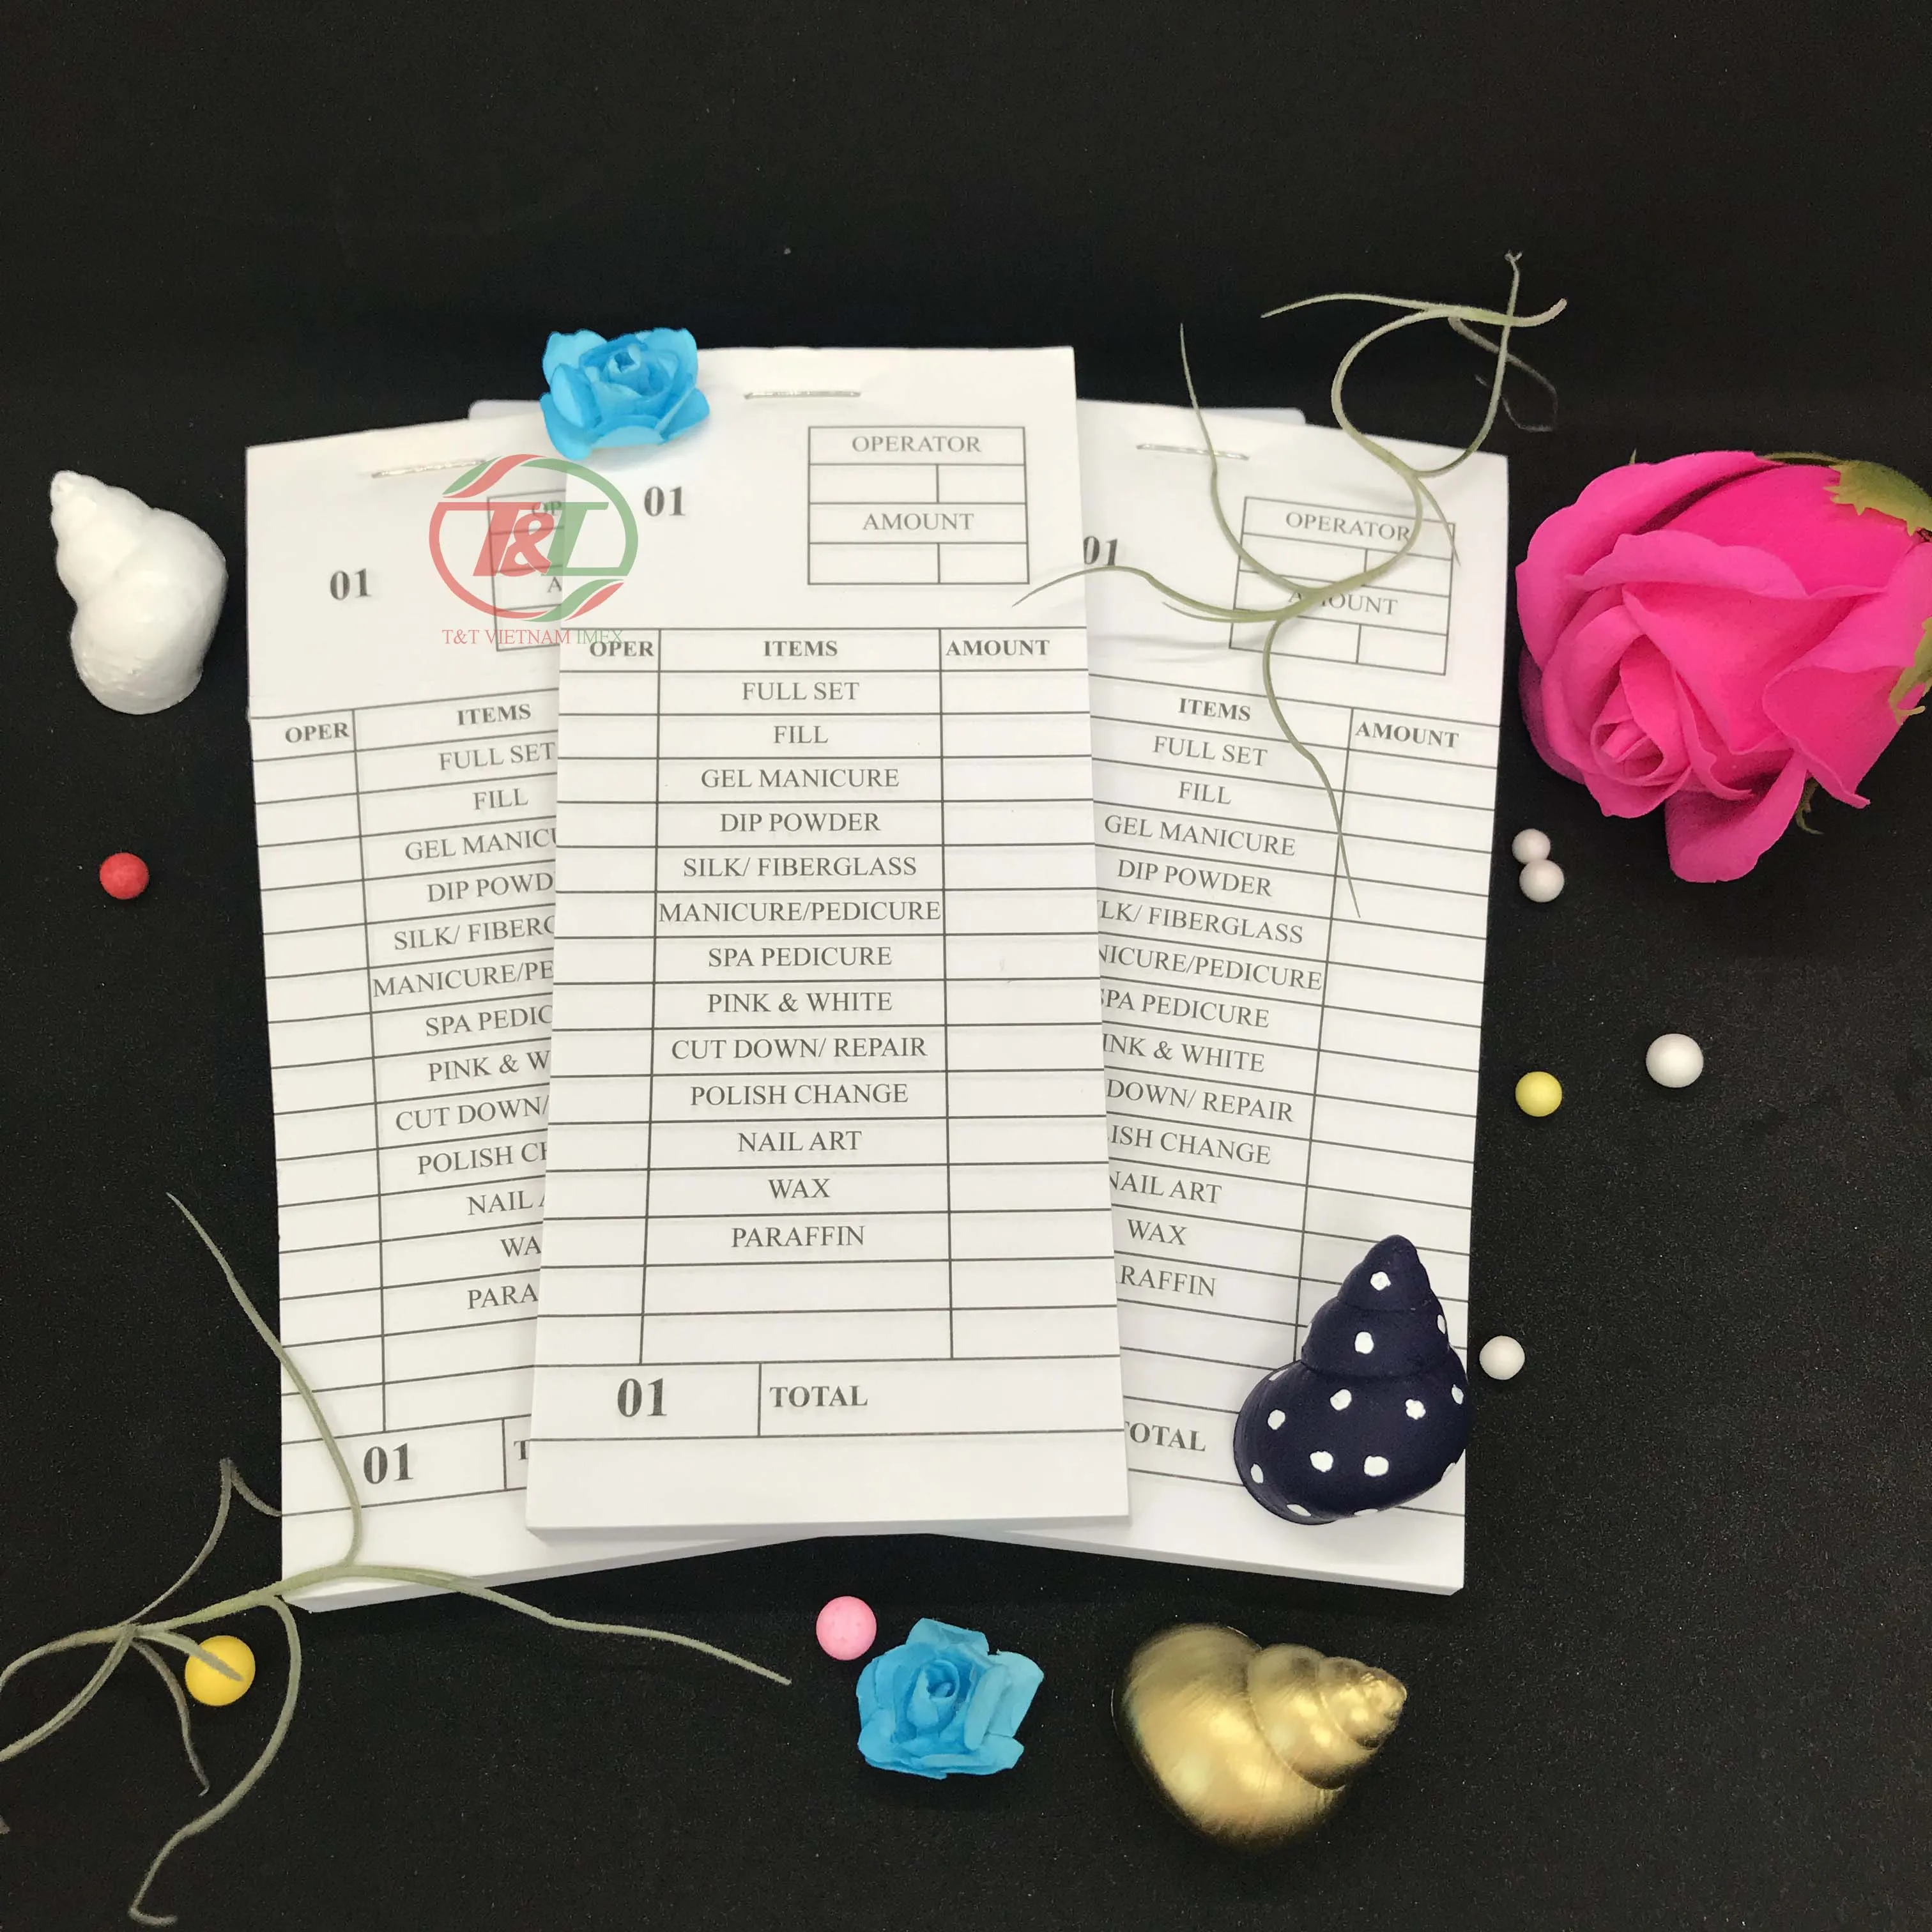 T&T
T&T VIETNAM IMEX
01
OP
A
OPER ITEMS
FULL SET
FILL
GEL MANICU
DIP POWD
SILK/ FIBERG
MANICURE/PE
SPA PEDIC
PINK & W
CUT DOWN/
POLISH CH
NAIL A
WA
PARA
01 T
01
OPERATOR
AMOUNT
OPER ITEMS AMOUNT
FULL SET
FILL
GEL MANICURE
DIP POWDER
SILK/ FIBERGLASS
MANICURE/PEDICURE
SPA PEDICURE
PINK & WHITE
CUT DOWN/ REPAIR
POLISH CHANGE
NAIL ART
WAX
PARAFFIN
01 TOTAL
01
OPERATOR
AMOUNT
ITEMS AMOUNT
FULL SET
FILL
GEL MANICURE
DIP POWDER
LK/ FIBERGLASS
NICURE/PEDICURE
SPA PEDICURE
INK & WHITE
DOWN/ REPAIR
ISH CHANGE
NAIL ART
WAX
RAFFIN
TOTAL